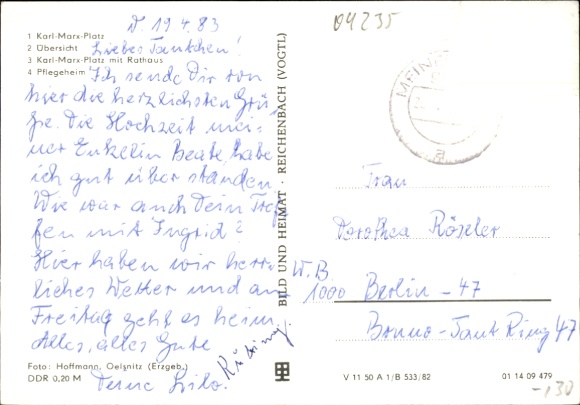 D 19.4.83
1 Karl-Marx-Platz
2 Übersicht
3 Karl-Marx-Platz mit Rathaus
4 Pflegeheim
Liebes Tantchen!
Ich sende Dir von
hier die herzlichsten Grü-
ße. Die Hochzeit mei-
ner Enkelin Beate habe
ich gut über standen.
Wie war auch Dein Tref-
fen mit Ingrid?
Hier haben wir herr-
liches Wetter und am
Freitag geht es heim.
Alles, alles Gute
Deine
Foto: Hoffmann, Oelsnitz (Erzgeb.)
DDR 0,20 M
BILD UND HEIMAT REICHENBACH (VOGTL)
04235
Frau
Dorothea Rösler
W.B.
1000 Berlin -47
Bruno-Taut Ring 47
V 11 50 A 1/B 533/82
01 14 09 479
-130